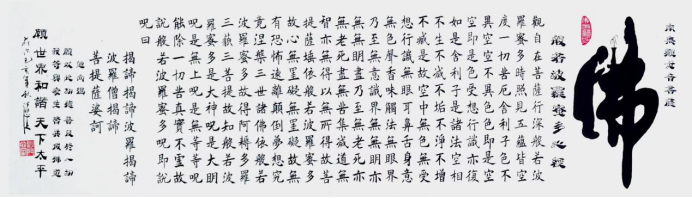 佛
般若波羅蜜多心經
觀自在菩薩行深般若波
羅蜜多時照見五蘊皆空
度一切苦厄舍利子色不
異空空不異色色即是空
空即是色受想行識亦復
如是舍利子是諸法空相
不生不滅不垢不淨不增
不減是故空中無色無受
想行識無眼耳鼻舌身意
無色聲香味觸法無眼界
乃至無意識界無無明亦
無無明盡乃至無老死亦
無老死盡無苦集滅道無
智亦無得以無所得故菩
提薩埵依般若波羅蜜多
故心無罣礙無罣礙故無
有恐怖遠離顛倒夢想究
竟涅槃三世諸佛依般若
波羅蜜多故得阿耨多羅
三藐三菩提故知般若波
羅蜜多是大神呪是大明
呪是無上呪是無等等呪
能除一切苦真實不虛故
說般若波羅蜜多呪即說
呪曰
揭諦揭諦波羅揭諦
波羅僧揭諦
菩提薩婆訶
迴向偈
願以此功德普及於一切
我等與眾生皆共成佛道
願世界和諧天下太平